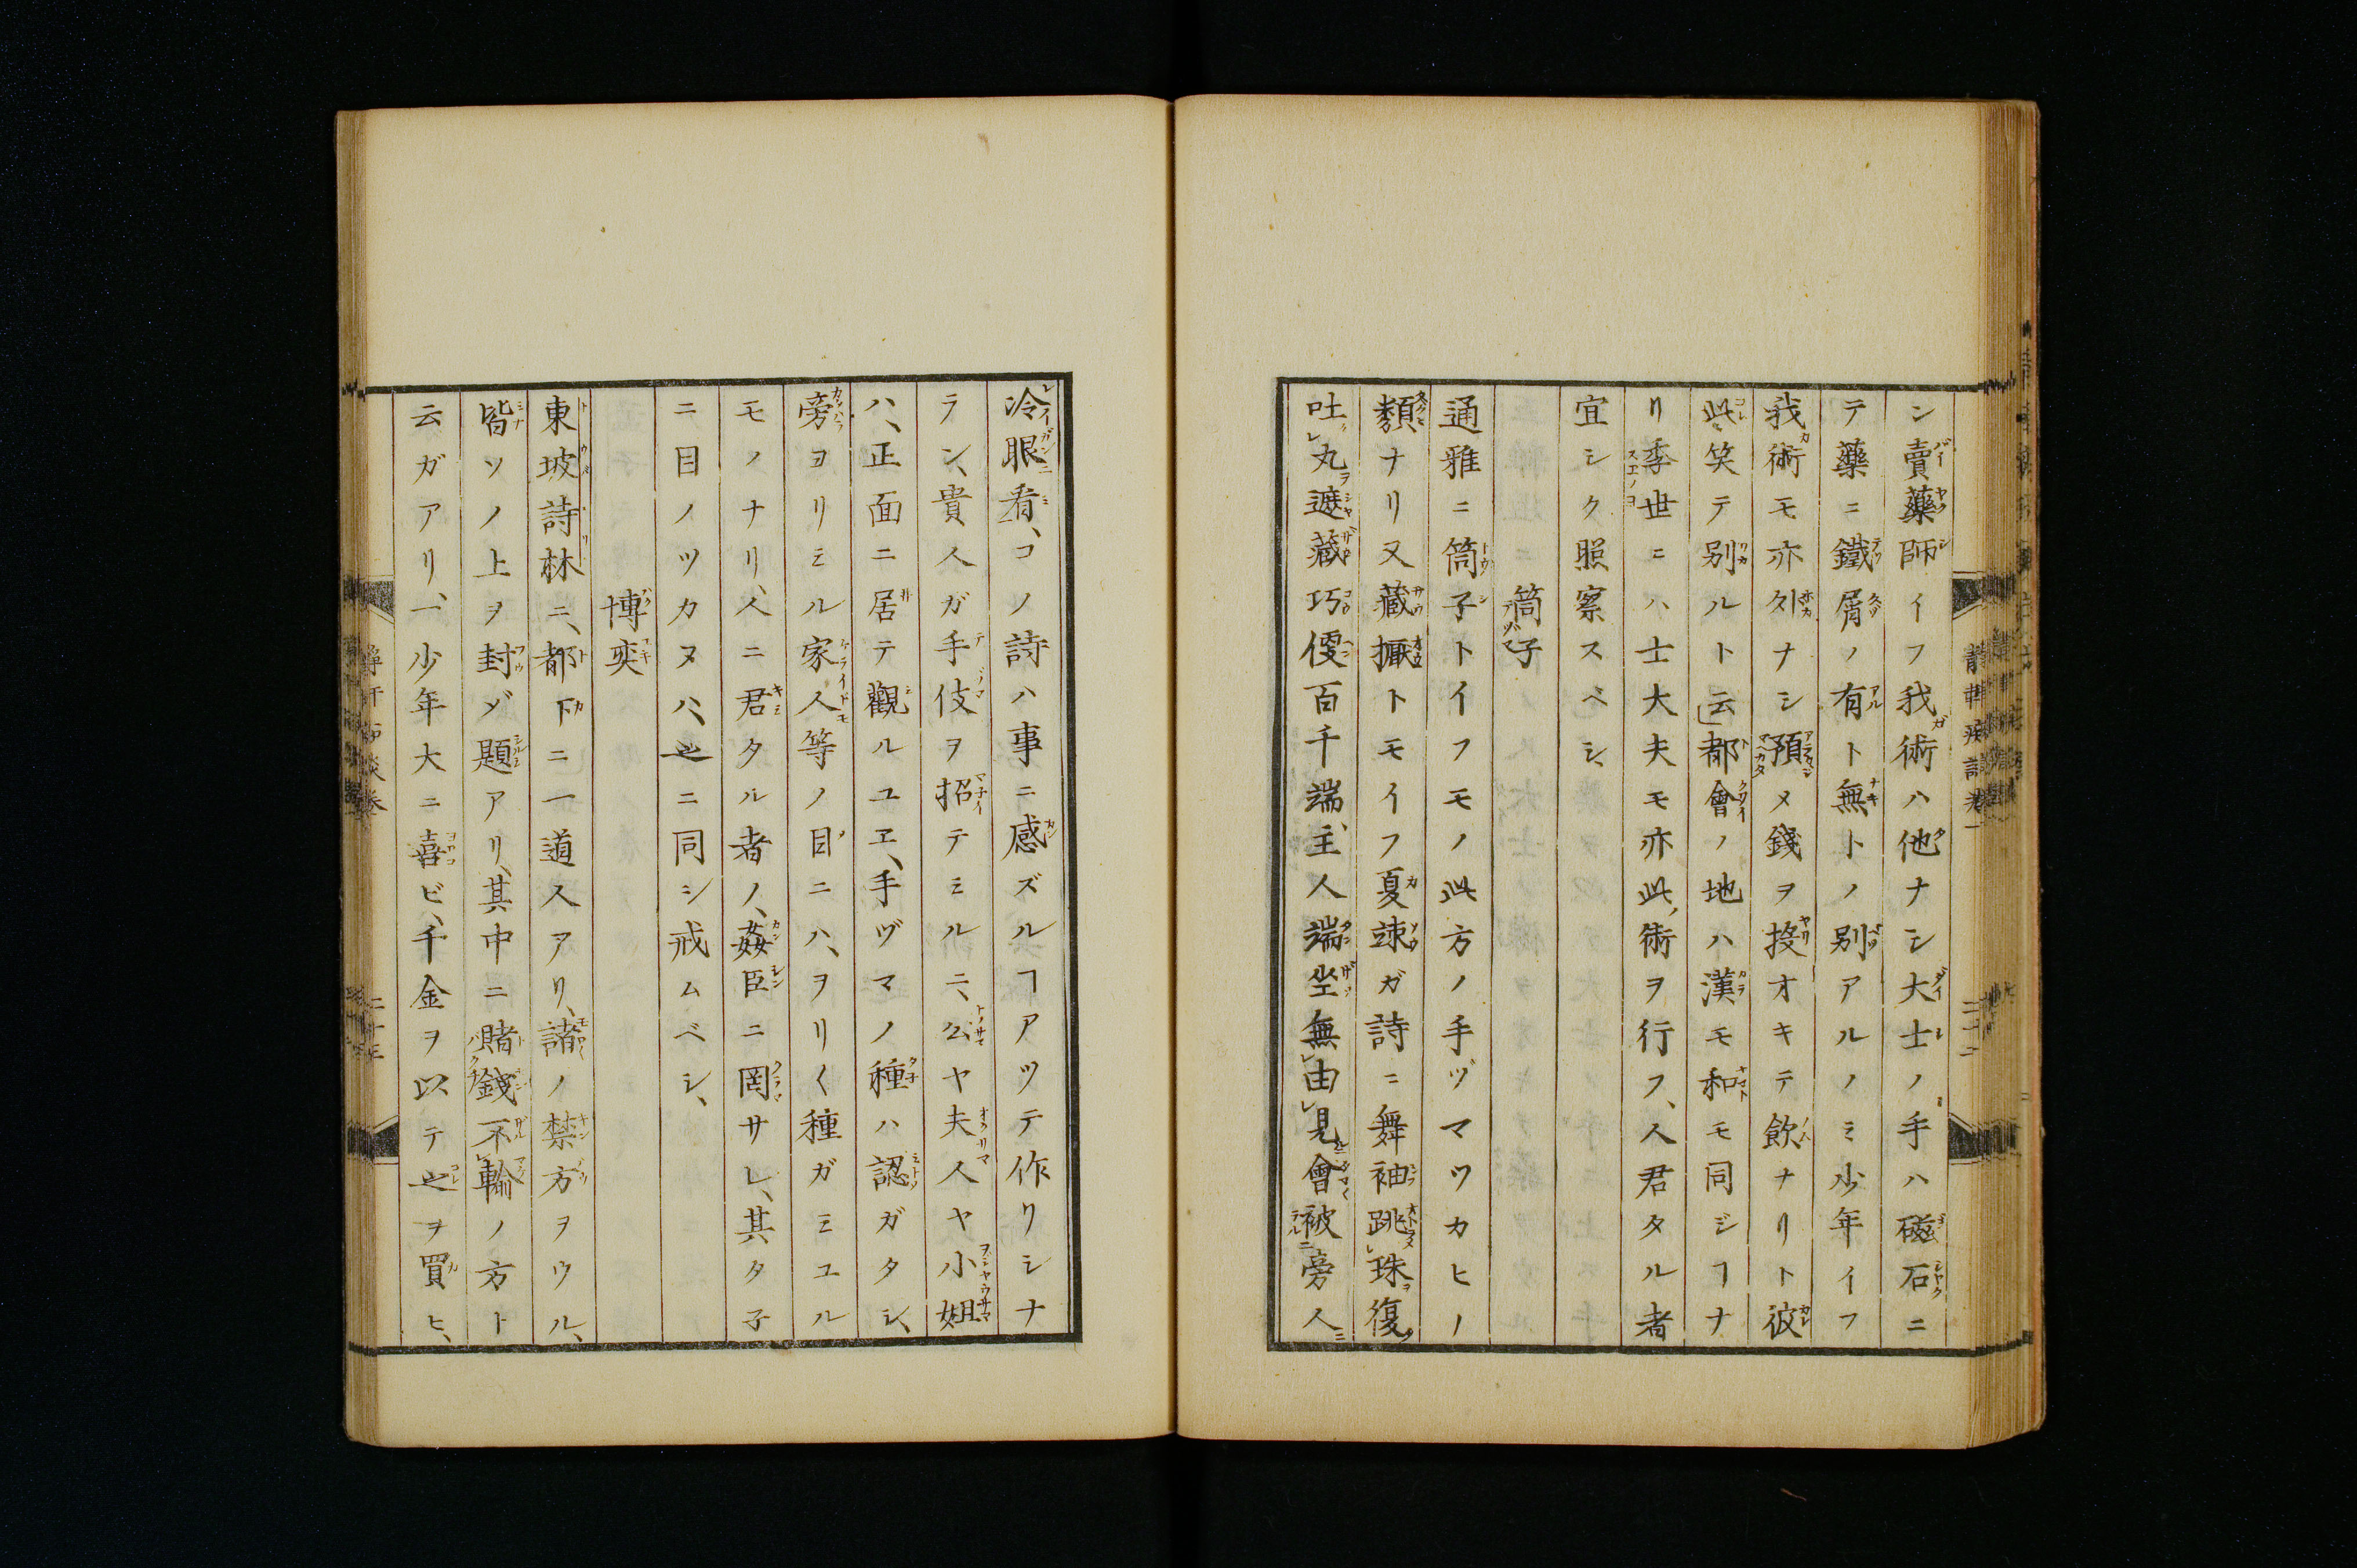 シ賣藥師イフ我術ハ他ナシ大士ノ手ハ磁石ニ
テ藥ニ鐵屑ノ有ト無トノ別アルノミ少年イフ
我術モ亦タ外ナシ預メ錢ヲ投オキテ飲ナリト彼
此笑テ別ルト云都會ノ地ハ漢モ和モ同ジヿナ
リ季世ニハ士大夫モ亦此術ヲ行フ、人君タル者
宜シク照察スベシ、
筒子
通雅ニ筒子トイフモノ此方ノ手ヅマツカヒノ
類ナリ又藏擫トモイフ夏竦ガ詩ニ舞袖跳珠復
吐丸遮藏巧便百千端、主人端坐無由見會被旁人
冷眼看、コノ詩ハ事ニ感ズルヿアツテ作リシナ
ラン、貴人ガ手伎ヲ招テミルニ、公ヤ夫人ヤ小姐
ハ、正面ニ居テ觀ルユヱ、手ヅマノ種ハ認ガタシ、
旁ヨリミル家人等ノ目ニハ、ヲリ〱種ガミユル
モノナリ、人ニ君タル者ノ、姦臣ニ罔サレ、其タ子
ニ目ノツカヌハ、之ニ同シ戒ムベシ、
博奕
東坡詩林ニ、都下ニ一道人アリ、諸ノ禁方ヲウル、
皆ソノ上ヲ封ジ題アリ、其中ニ賭錢不輸ノ方ト
云ガアリ、一少年大ニ喜ビ、千金ヲ以テ之ヲ買ヒ、